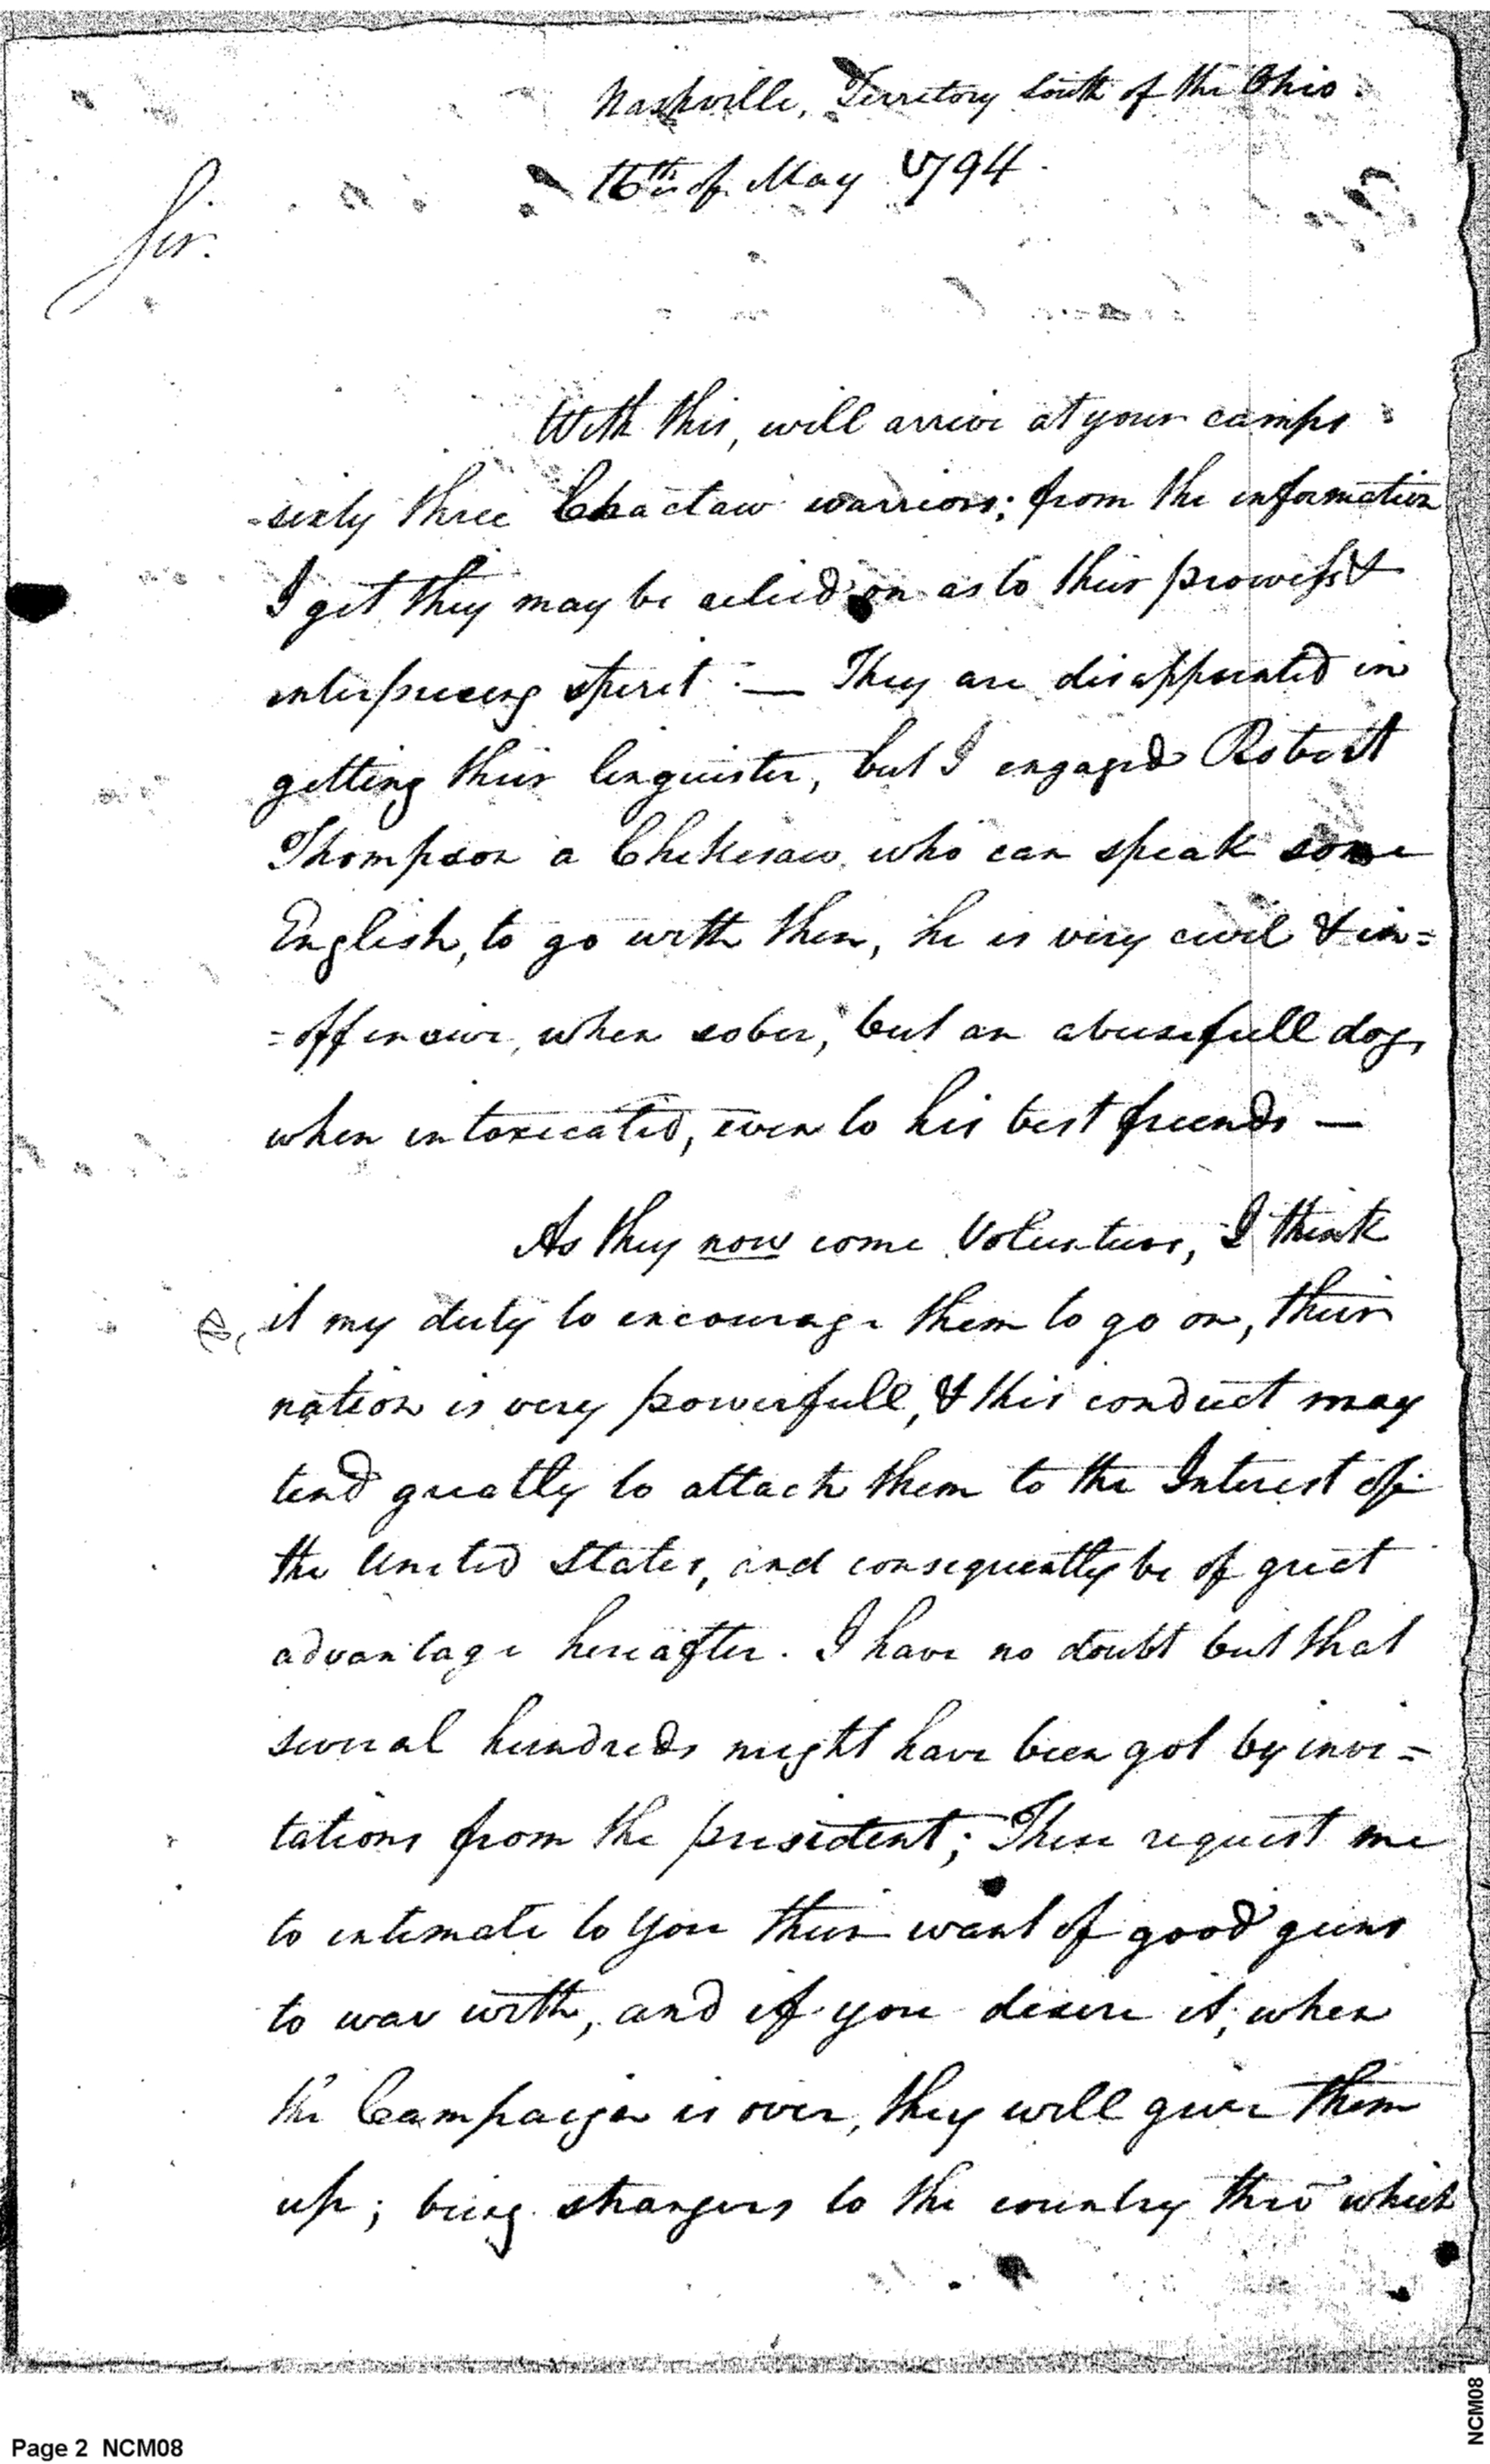 Nashville, Territory South of the Ohio.
16th of May 1794.
Sir.
With this, will arrive at your camps
sixty three Chactaw warriors; from the information
I get they may be relied on as to their prowess &
interpriseing spirit. — They are disappointed in
getting their linguister, but I engaged Robert
Thompson a Chekesaw, who can speak some
English, to go with them, he is very civil & in=
=offensive, when sober, but an abusefull dog,
when intoxicated, even to his best friends —
As they now come Volunteers, I think
it my duty to encourage them to go on, their
nation is very powerfull, & this conduct may
tend greatly to attach them to the Interest of
the United States, and consequently be of great
advantage hereafter. I have no doubt but that
several hundreds might have been got by invi=
tations from the president; These request me
to intimate to you their want of good guns
to war with, and if you desire it, when
the Campaign is over, they will give them
up; being strangers to the country thro' which
Page 2 NCM08
NCM08